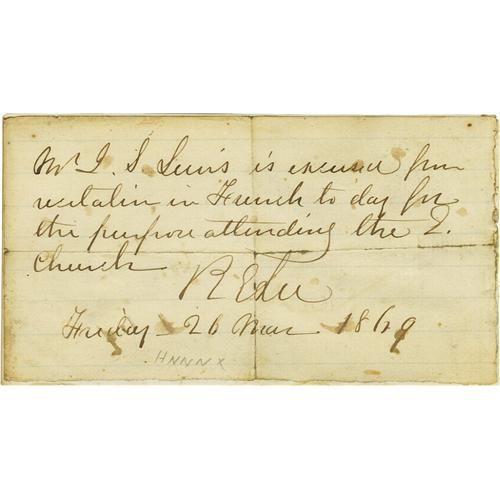 Mr J. S. Lewis is excused from
recitatin in French to day for
the purpose attending the E.
Church
R E Lee
Friday 26 Mar 1869
HNNNX